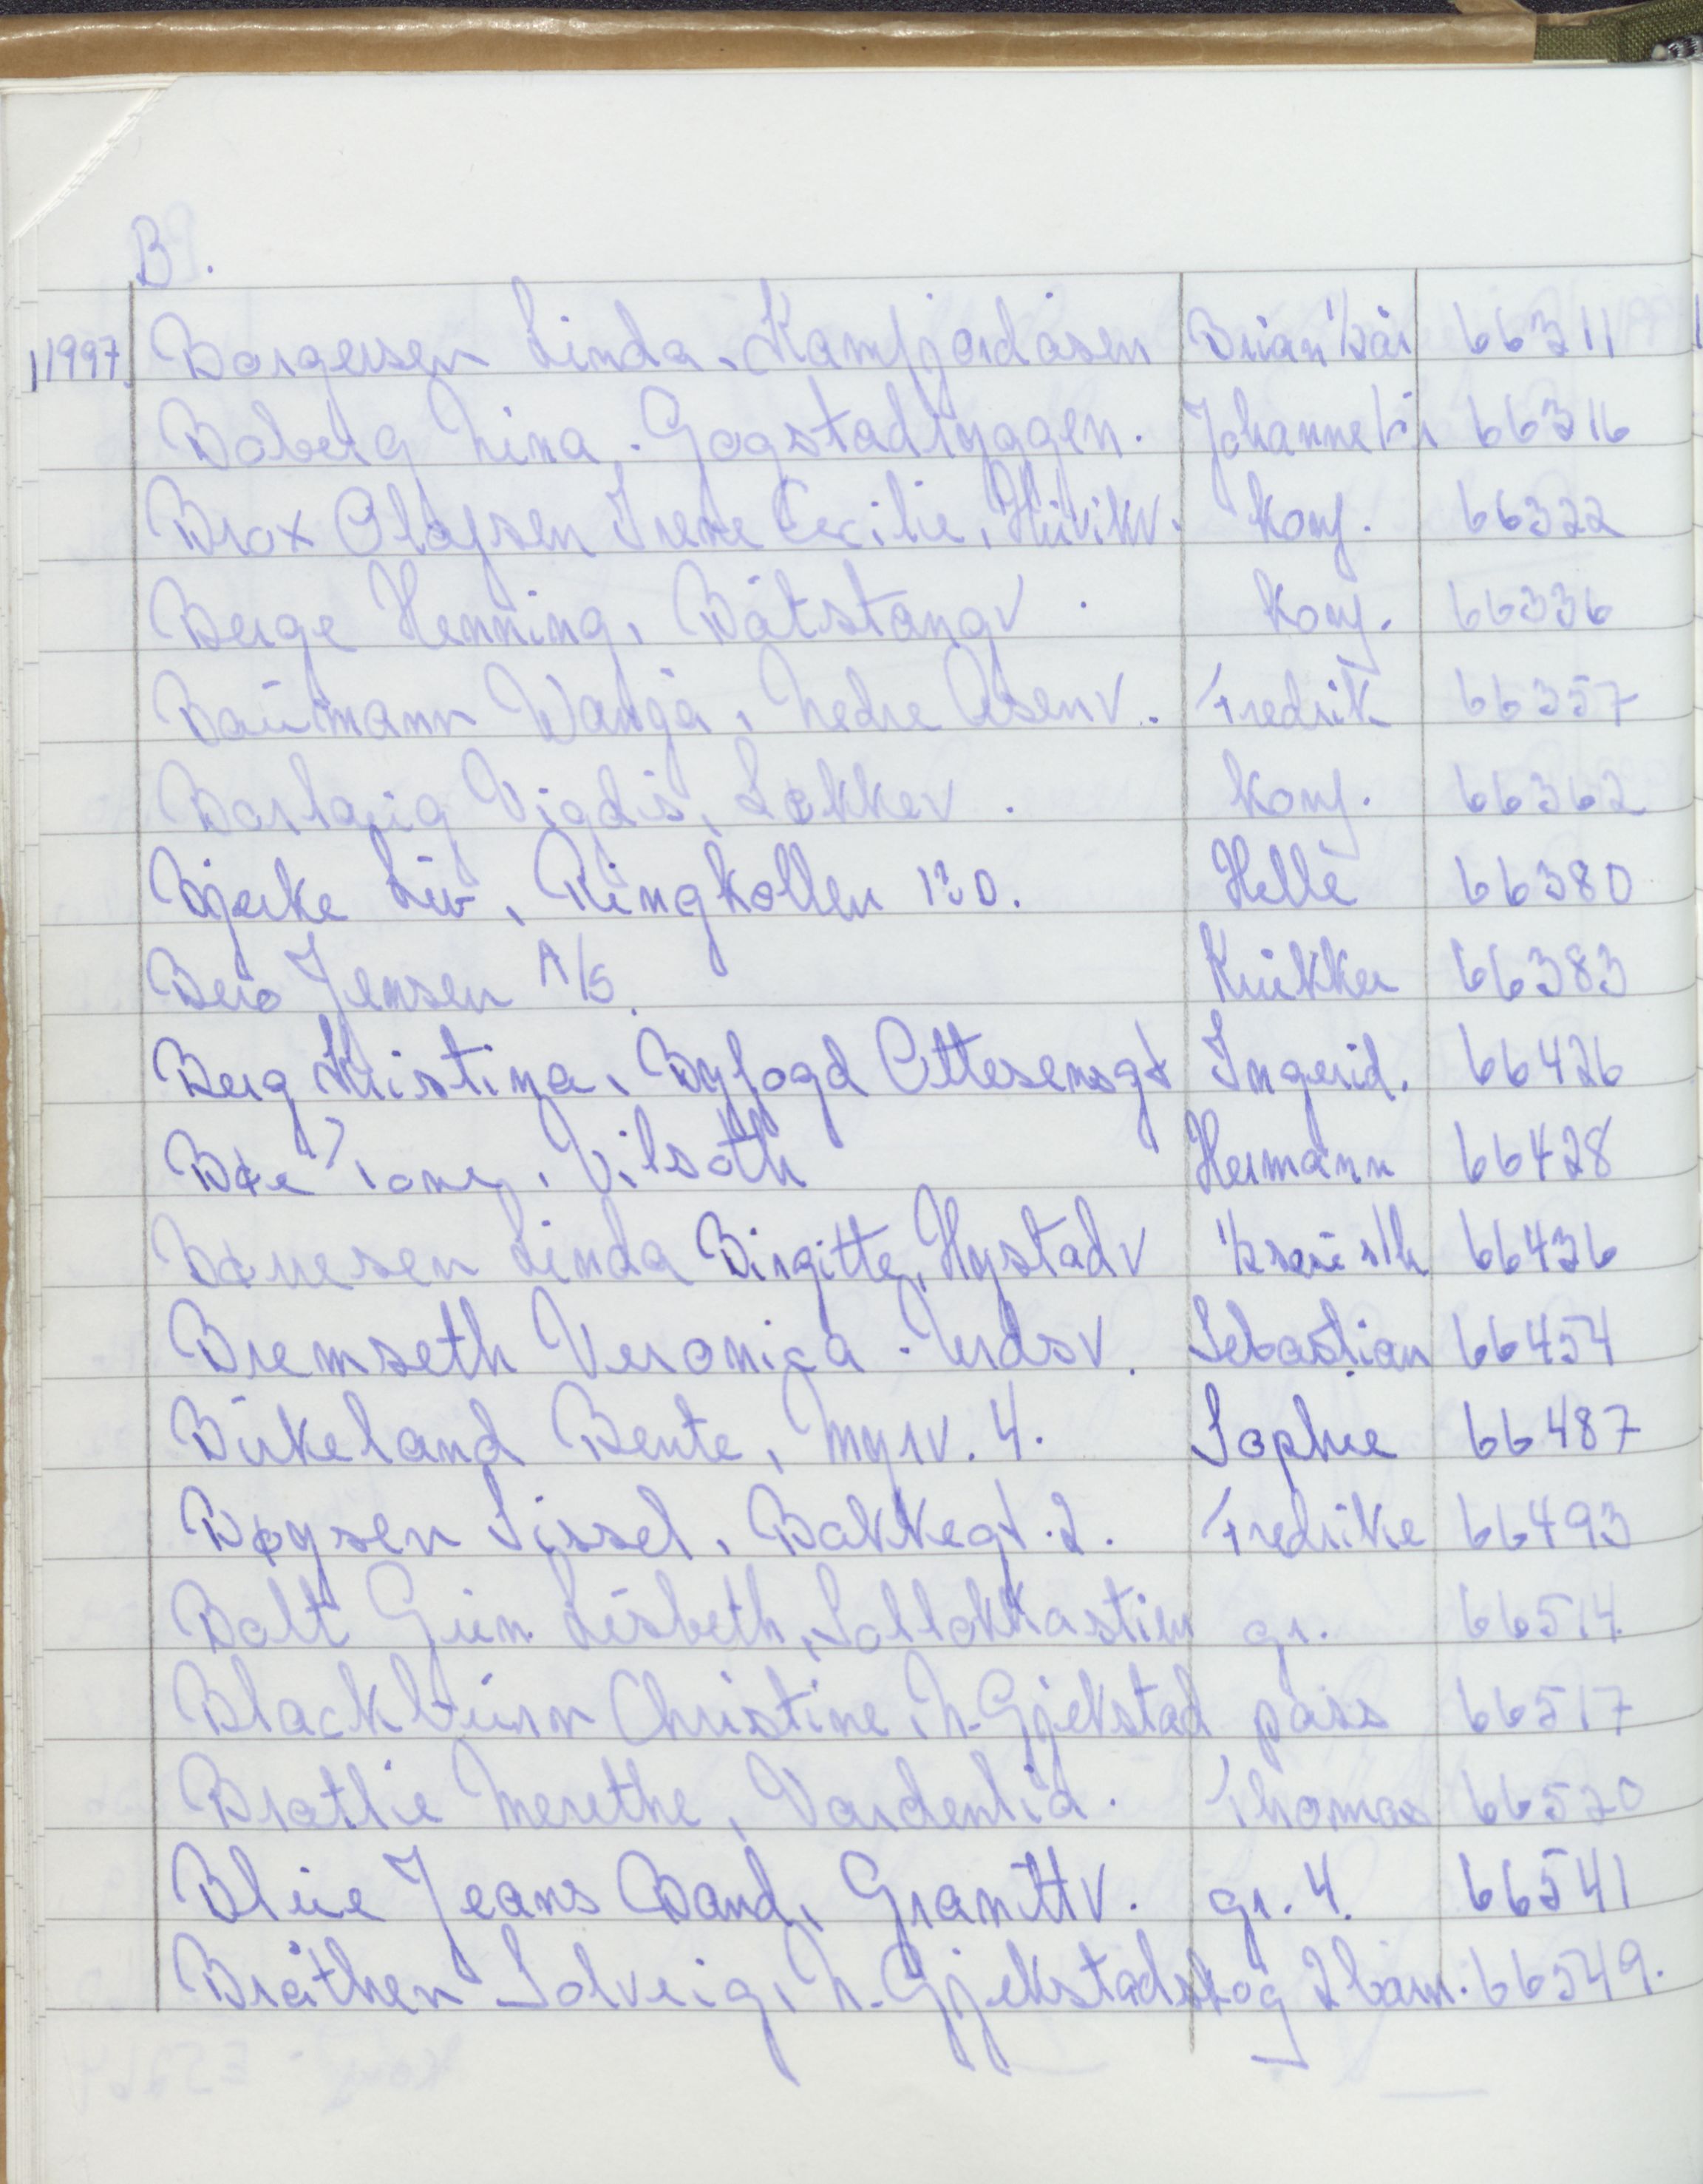 B.
1997 Borgersen Linda. Kamfjordåsen Brian ½ år 66311
Boberg Nina. Gogstadryggen. Johanne ½ år 66316
Brox Olafsen Irene Cecilie, Huvikv. konf. 66322
Berge Henning, Båtstangv. konf. 66336
Baumann Wanja, Nedre Åsenv. Fredrik 66357
Vigdis, Løkkev. konf. 66362
Bjerke Liv, Ringkollen 13 D. Helle 66380
Bero Jensen A/S. Krukker 66383
Berg Kristina, Byfogd Ottesensgt Ingerid. 66426
Bøe Toney, Vilsoth Hermann 66428
Børresen Linda Birgitte, Hystadv 66436
Bremseth Veronica. Nordsv. Sebastian 66454
Birkeland Bente, Myrv. 4. Sophie 66487
Bøysen Sissel, Bakkegt. 2. Fredrike 66493
Bolt Gun Lisbeth, Solløkkastien gr. 66514
Blackburn Christine, N. Gjekstad pass 66517
Bratlie Merethe, Vardenlia. Thomas 66520
Blue Jeans Band, Granittv. gr. 4. 66541
Bråthen Solveig, N. Gjekstadskog 2 barn. 66549.